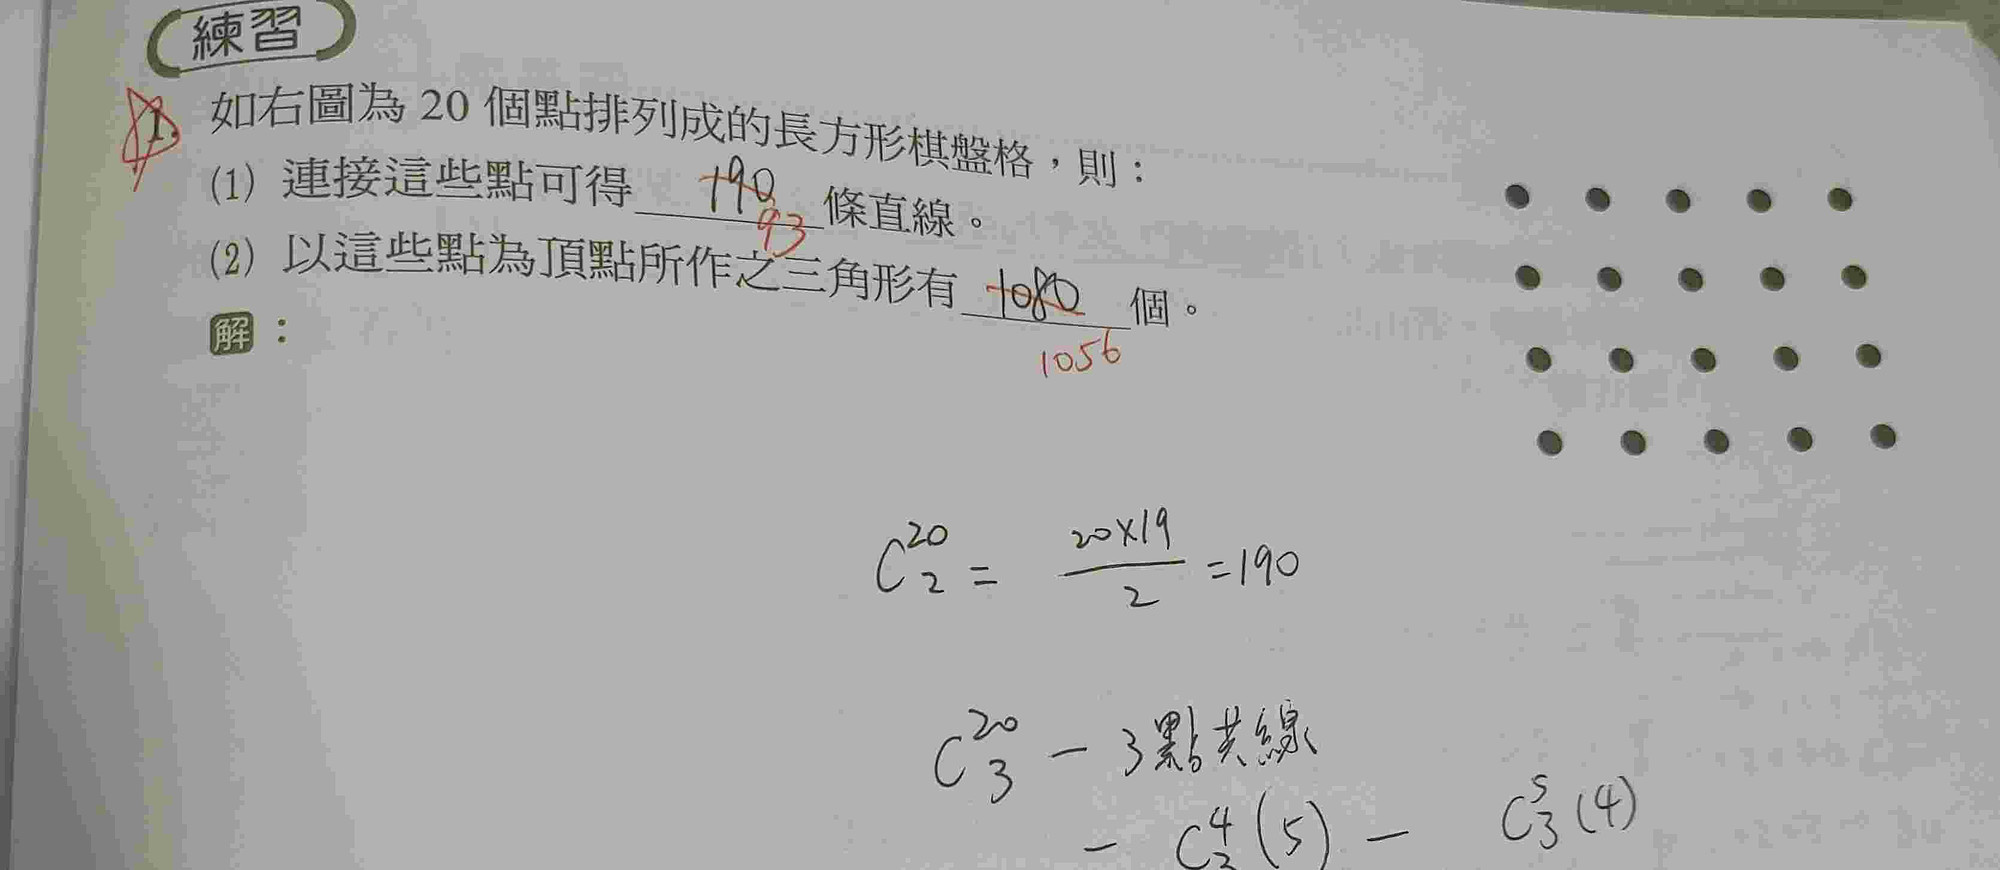 練習
1. 如右圖為 20 個點排列成的長方形棋盤格，則：
(1) 連接這些點可得 190 條直線。
93
(2) 以這些點為頂點所作之三角形有 1080 個。
1056
解：
C²⁰₂ = 20×19/2 = 190
C²⁰₃ - 3點共線
- C⁴₃(5) - C⁵₃(4)